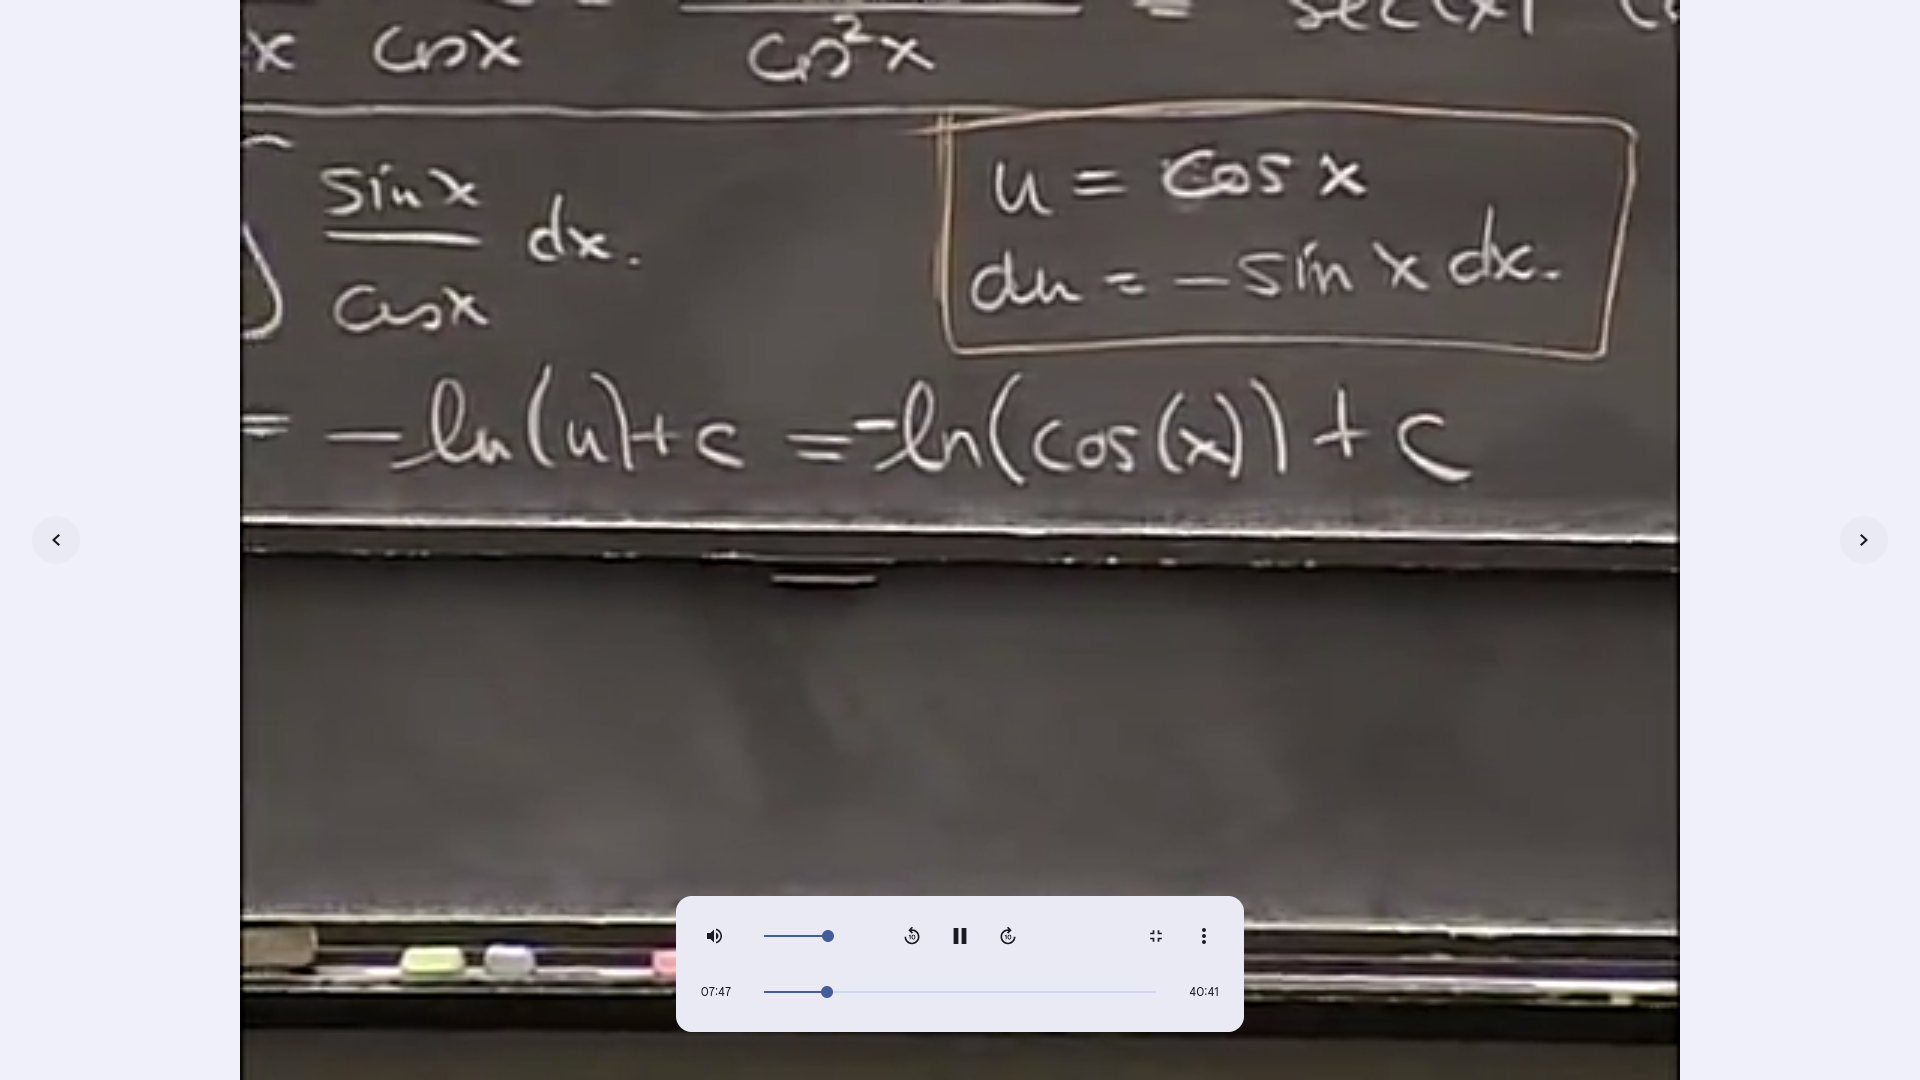 x cosx cos²x = sec(x)
∫ sinx/cosx dx.
u = cos x
du = - sin x dx.
= -ln(u)+c = -ln(cos(x)) + c
07:47 40:41